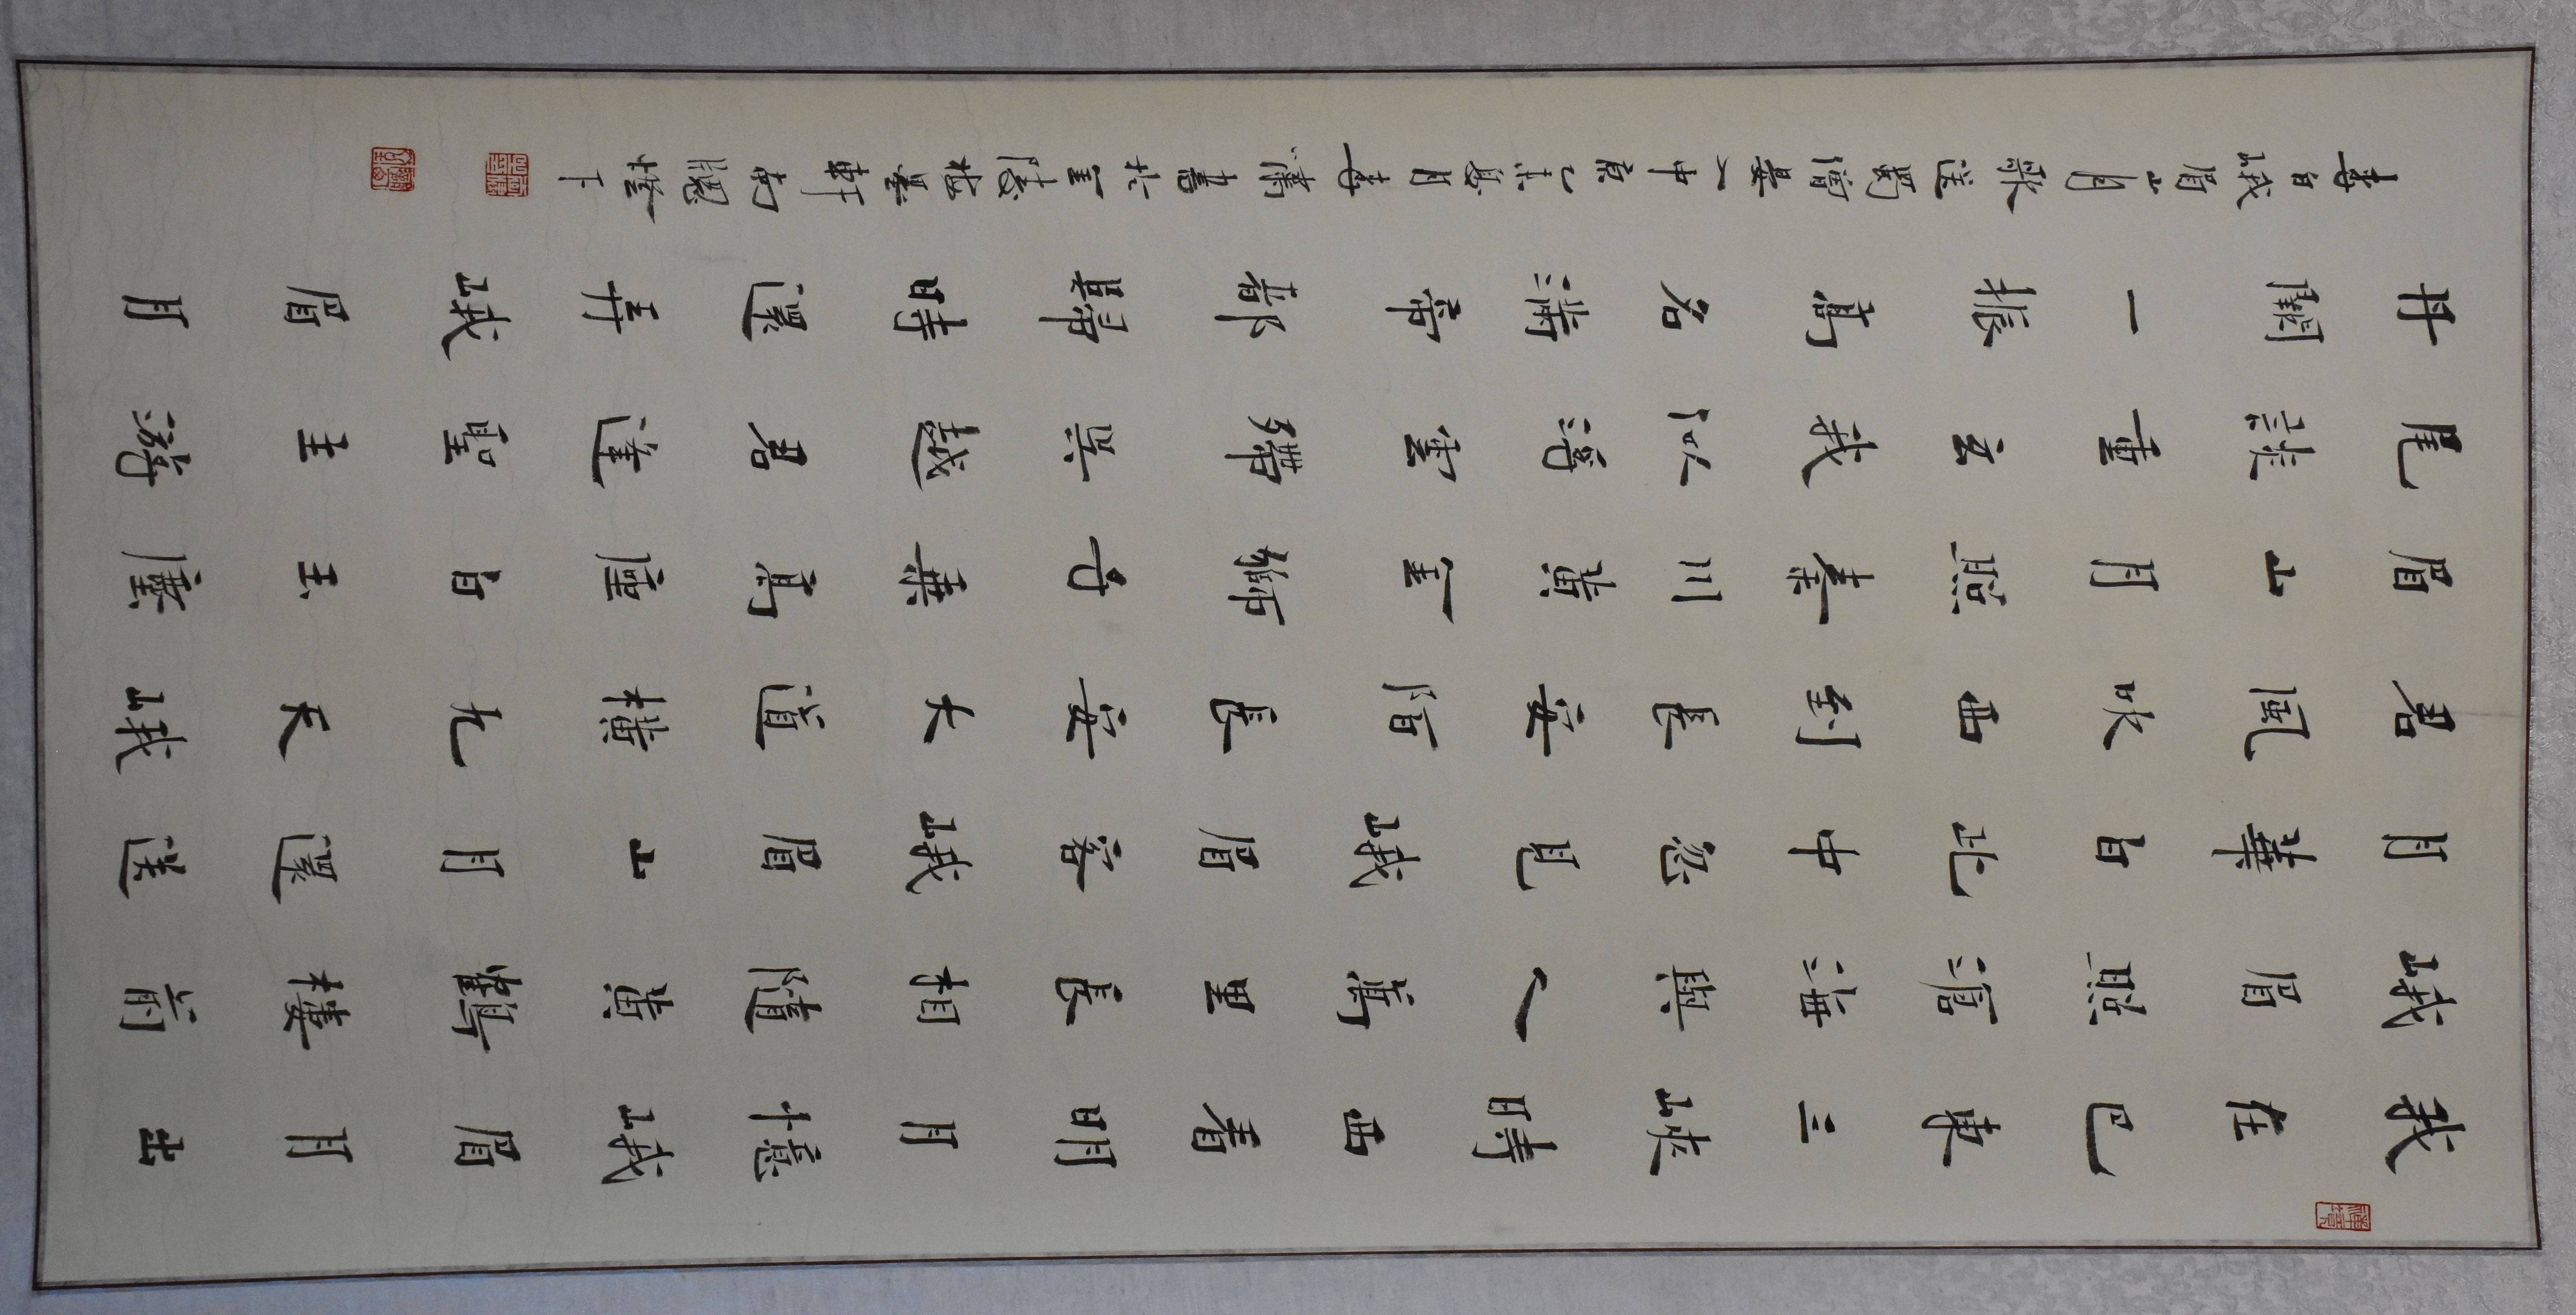 我在巴東三峽時西看明月憶峨眉月出
峨眉照滄海與人萬里長相隨黃鶴樓前
月華白此中忽見峨眉客峨眉山月還送
君風吹西到長安陌長安大道橫九天峨
眉山月照秦川黃金獅子乘高座白玉麈
尾談重玄我似浮雲殢吳越君逢聖主遊
丹闕一振高名滿帝都歸時還弄峨眉月
李白峨眉山月歌送蜀僧晏入中京己亥夏月李濤書於金陵軒窗燈下